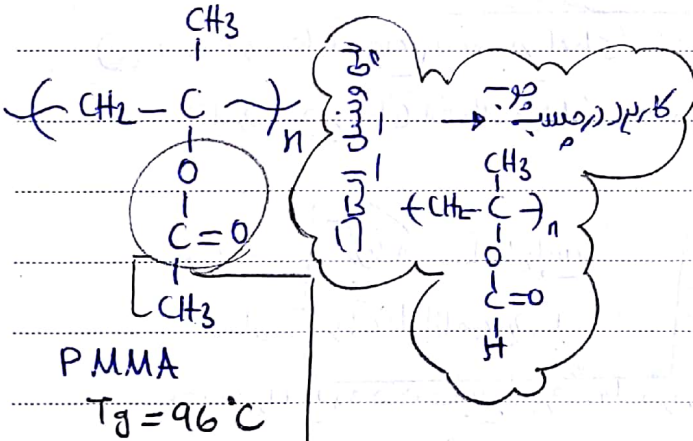 CH3
( CH2 — C )n
O
C = O
CH3
PMMA
Tg = 96°C
→ کاربرد در چسب چوب
CH3
(CH2 — C)n
O
C = O
H